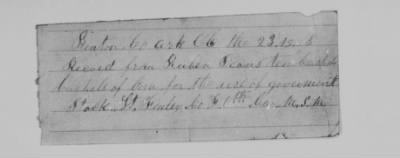 Benton Co Ark Feb the 23 18 5
Recived from Reuben Evans ten bushels
bushels of Corn for the use of government
Stock Lt. Finley Co F 6th Cav M.S.M